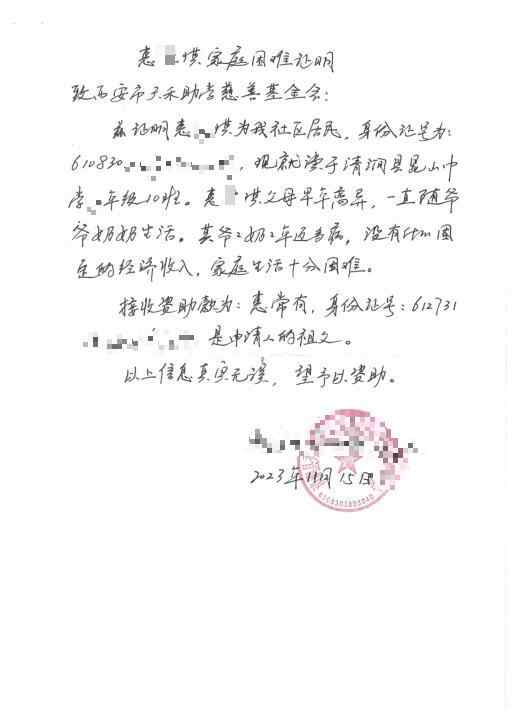 惠 琪家庭困难证明
致西安市天禾助学慈善基金会：
兹证明惠 琪为我社区居民，身份证号为：
610830 ，现就读于清涧县昆山中
学 年级10班。惠 琪父母早年离异，一直随爷
爷奶奶生活。其爷爷奶奶年迈多病，没有什么固
定的经济收入，家庭生活十分困难。
接收资助款为：惠常有，身份证号：612731
是申请人的祖父。
以上信息真实无误，望予以资助。
2023年11月15日